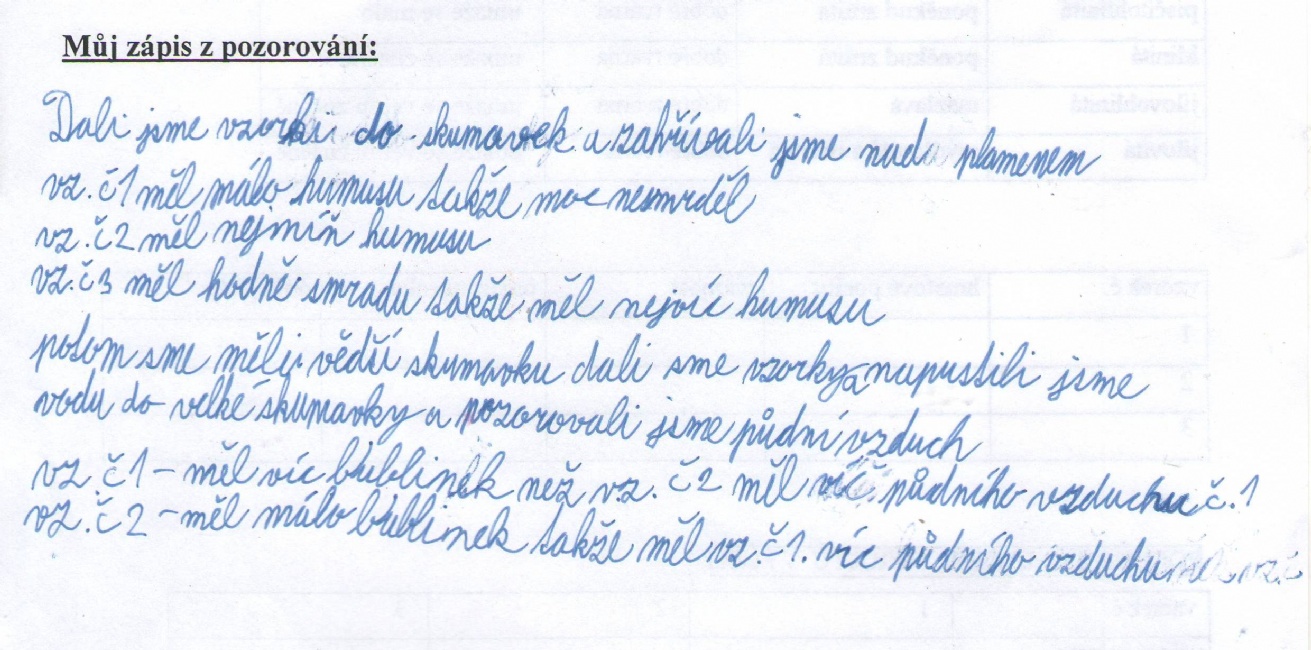 Můj zápis z pozorování:
Dali jsme vzorki do skumavek a zahřívali jsme nad plamenem
vz. č1 měl málo humusu takže moc nesmrděl
vz. č2 měl nejmíň humusu
vz. č3 měl hodně smradu takže měl nejvíc humusu
potom sme měli vědší skumavku dali sme vzorky a napustili jsme
vodu do velké skumavky a pozorovali jsme půdní vzduch
vz. č1 – měl víc bublinek než vz. č2 měl víc půdního vzduchu č.1
vz. č2 – měl málo bublinek takže měl vz. č1. víc půdního vzduchu než vz.č